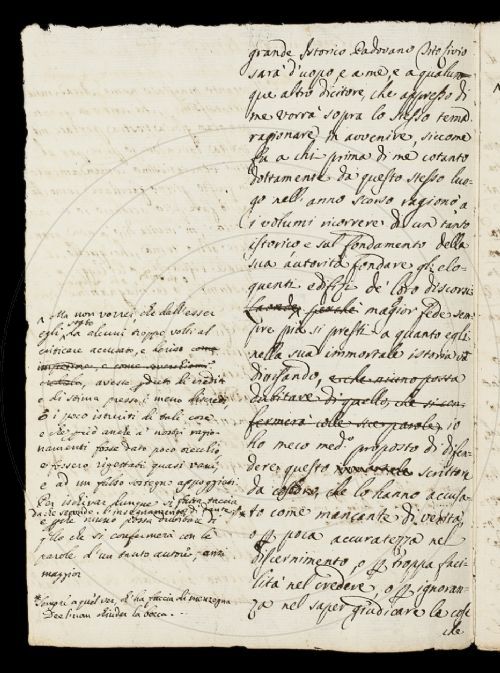 grande Istorico Padovano Tito Livio
sarà d'uopo, e a me, e a qualun-
que altro dicitore, che appresso di
me vorrà sopra lo stesso tema
ragionare in avvenire, siccome
fu a chi prima di me cotanto
dottamente da questo stesso luo-
go nell'anno scorso ragionò a
i volumi ricorrere di un tanto
istorico e sul fondamento della
sua autorità fondare gli elo-
quenti edifizi de' loro discorsi
perchè maggior fede sem-
pre più si presti a quanto egli
nella sua immortale istoria và
divisando,
dubitare di quello, che si con-
fermerà colle sue parole, io
to meco med.o proposto di difen-
dere questo scrittore
da coloro, che lo hanno accusa-
to come mancante di verità,
o poca accuratezza nel
discernimento, o troppa faci-
lità nel credere, o ignoran-
za nel saper giudicare le cose
che
Ma non vorrei, che dell'esser
egli stato da alcuni troppo volti al
criticare accusato, e deriso come
avesse di credito
e di stima presso i meno
e i poco istruiti di tali cose
e che perciò anche a' nostri ragio-
namenti fosse dato poco orecchio,
e fossero rigettati quasi vani,
e ad un falso sostegno appoggiati.
Per ischivar dunque
e che niuno possa dubitare di
quello che si confermerà con le
parole d'un tanto autore, anzi
maggior
Sempre a quel ver, c'ha faccia di menzogna
Dee l'uom chiuder la bocca...